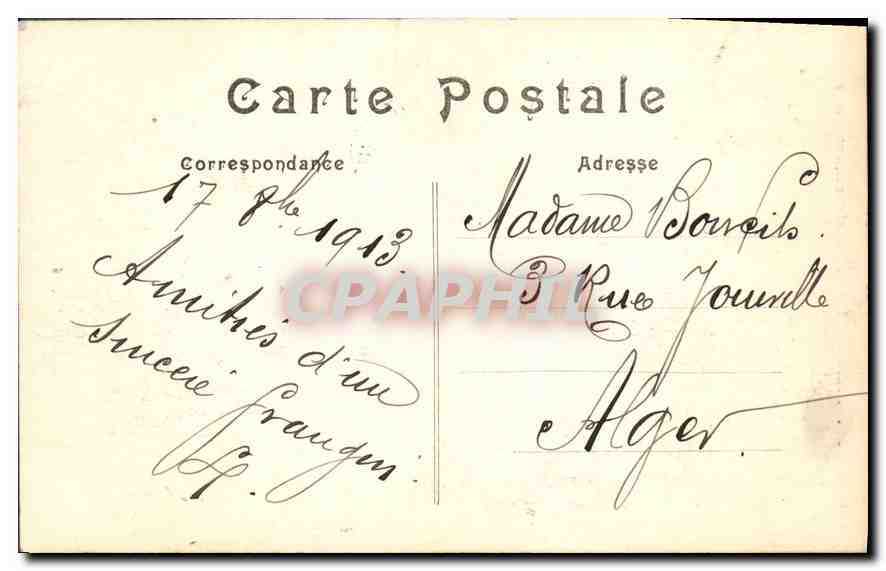 Carte Postale
Correspondance
17 8bre 1913
Amitiés d'un
sincère
frangin
Adresse
Madame
3 Rue Joinville
Alger.
CPAPHIL